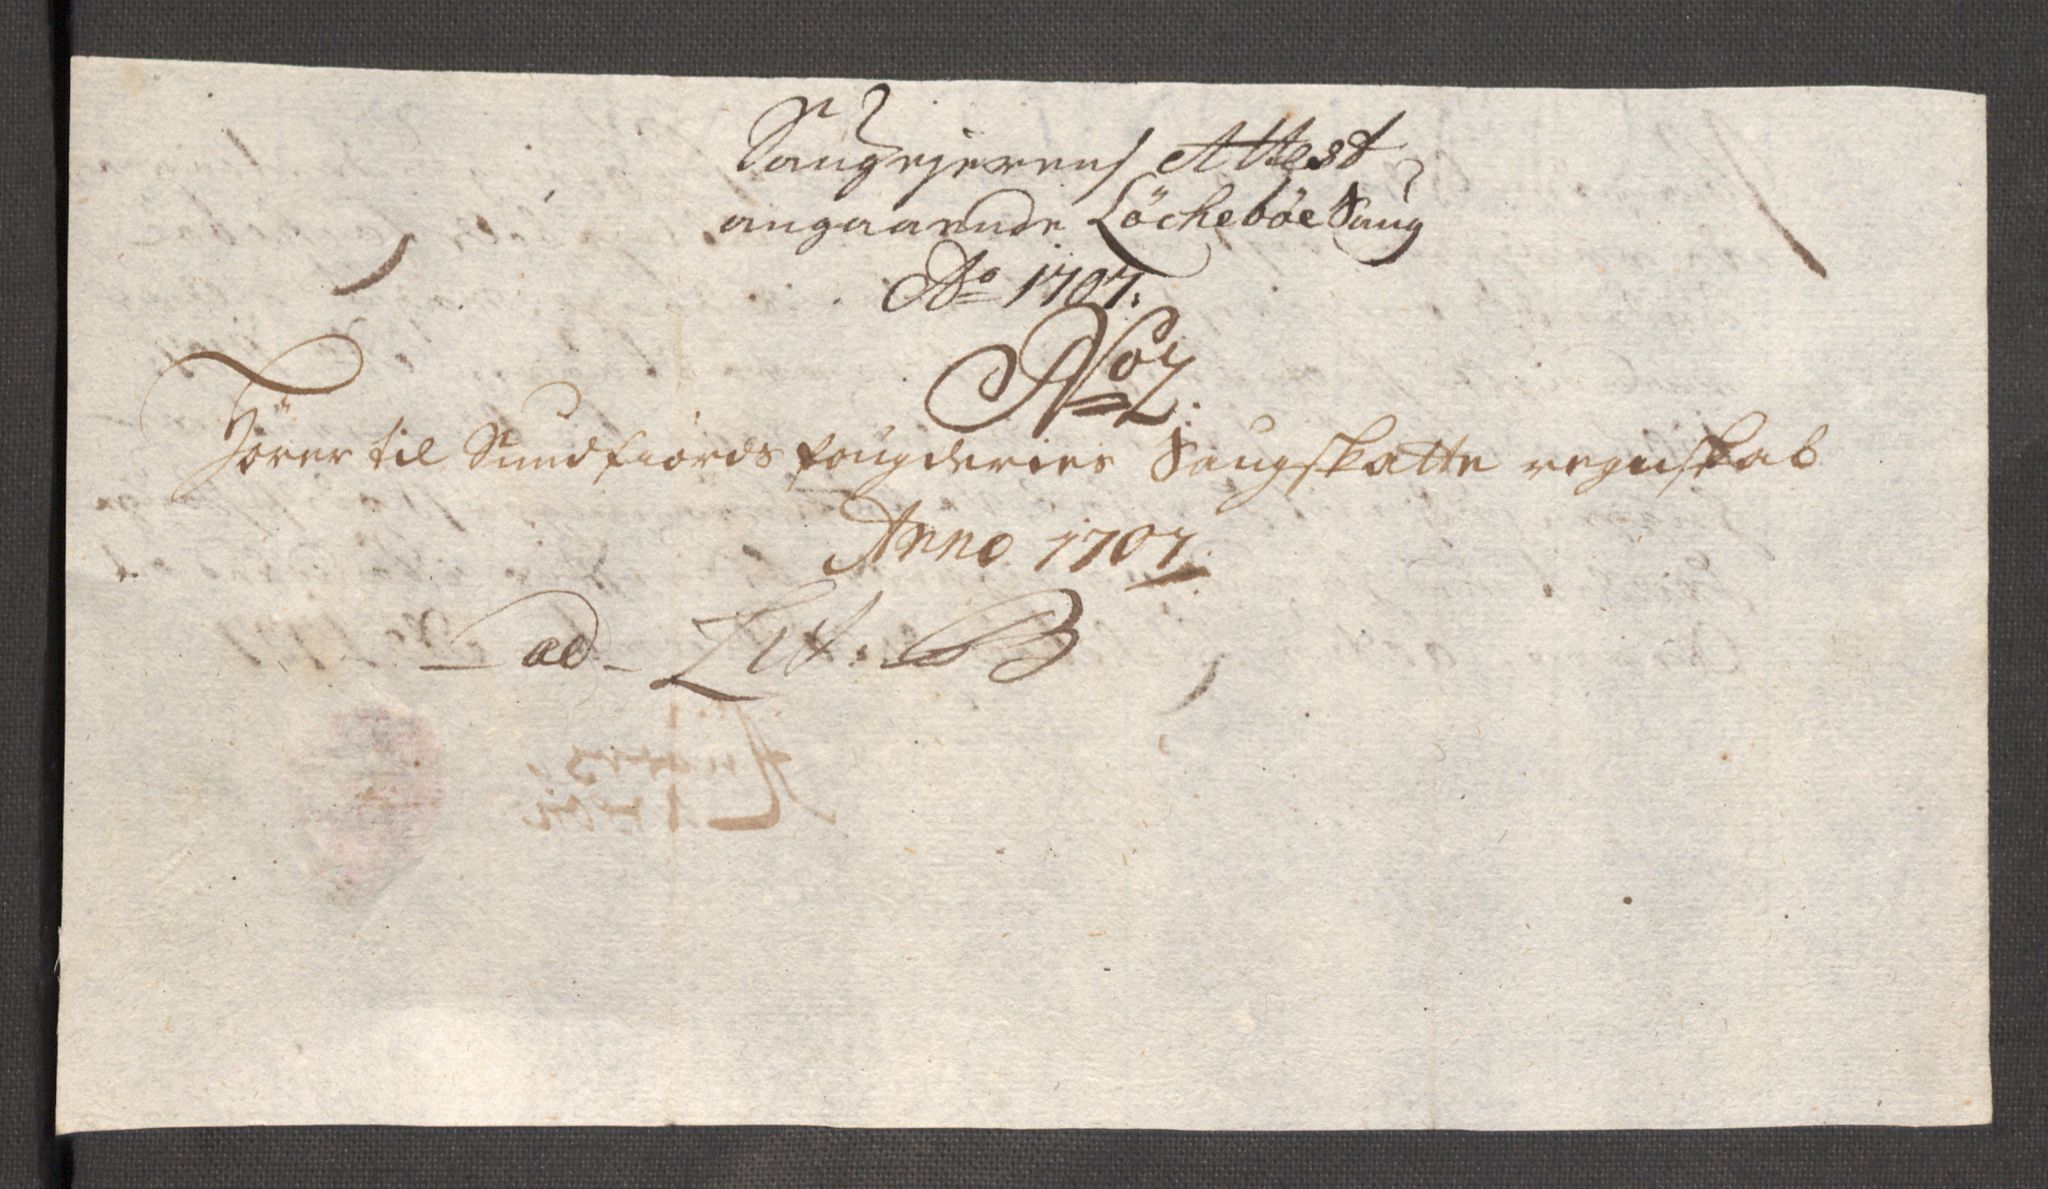 Saugejerens Attest
angaaende Löcheböe Saug
Ao 1707.
No 2.
Hörer til Sundfiords fougderies Saugskatte regnskab
Anno 1707.
ad Lit: B